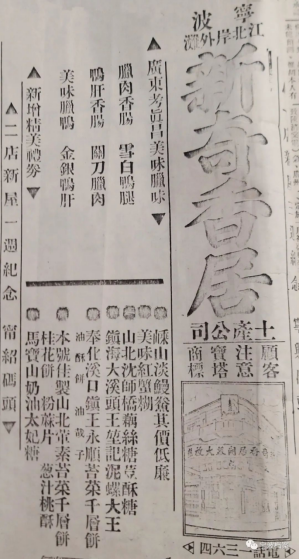 寧波
江北岸外灘
新奇香居
土產公司
顧客
注意
寶塔
商標
電話一三六四
▲廣東考眞昌美味臘味▼
臘肉香腸　雪白鴨腿
鴨肝香腸　關刀臘肉
美味臘鴨　金銀鴨肝
▲新增精美禮劵▼
▲二店新屋一週紀念　甯紹碼頭▼
嵊山淡鰻鯗其價低廉
美味紅蟹糊
山北沈師橋藕絲糖荳酥糖
鎭海大溪頭王莖記泥螺大王
奉化溪口鎭王永順苔菜千層餅
油酥餅　油
本號佳製山北葷素苔菜千層餅
桂花餅　粉蔴片　葱汁桃酥
馬寶山奶油太妃糖